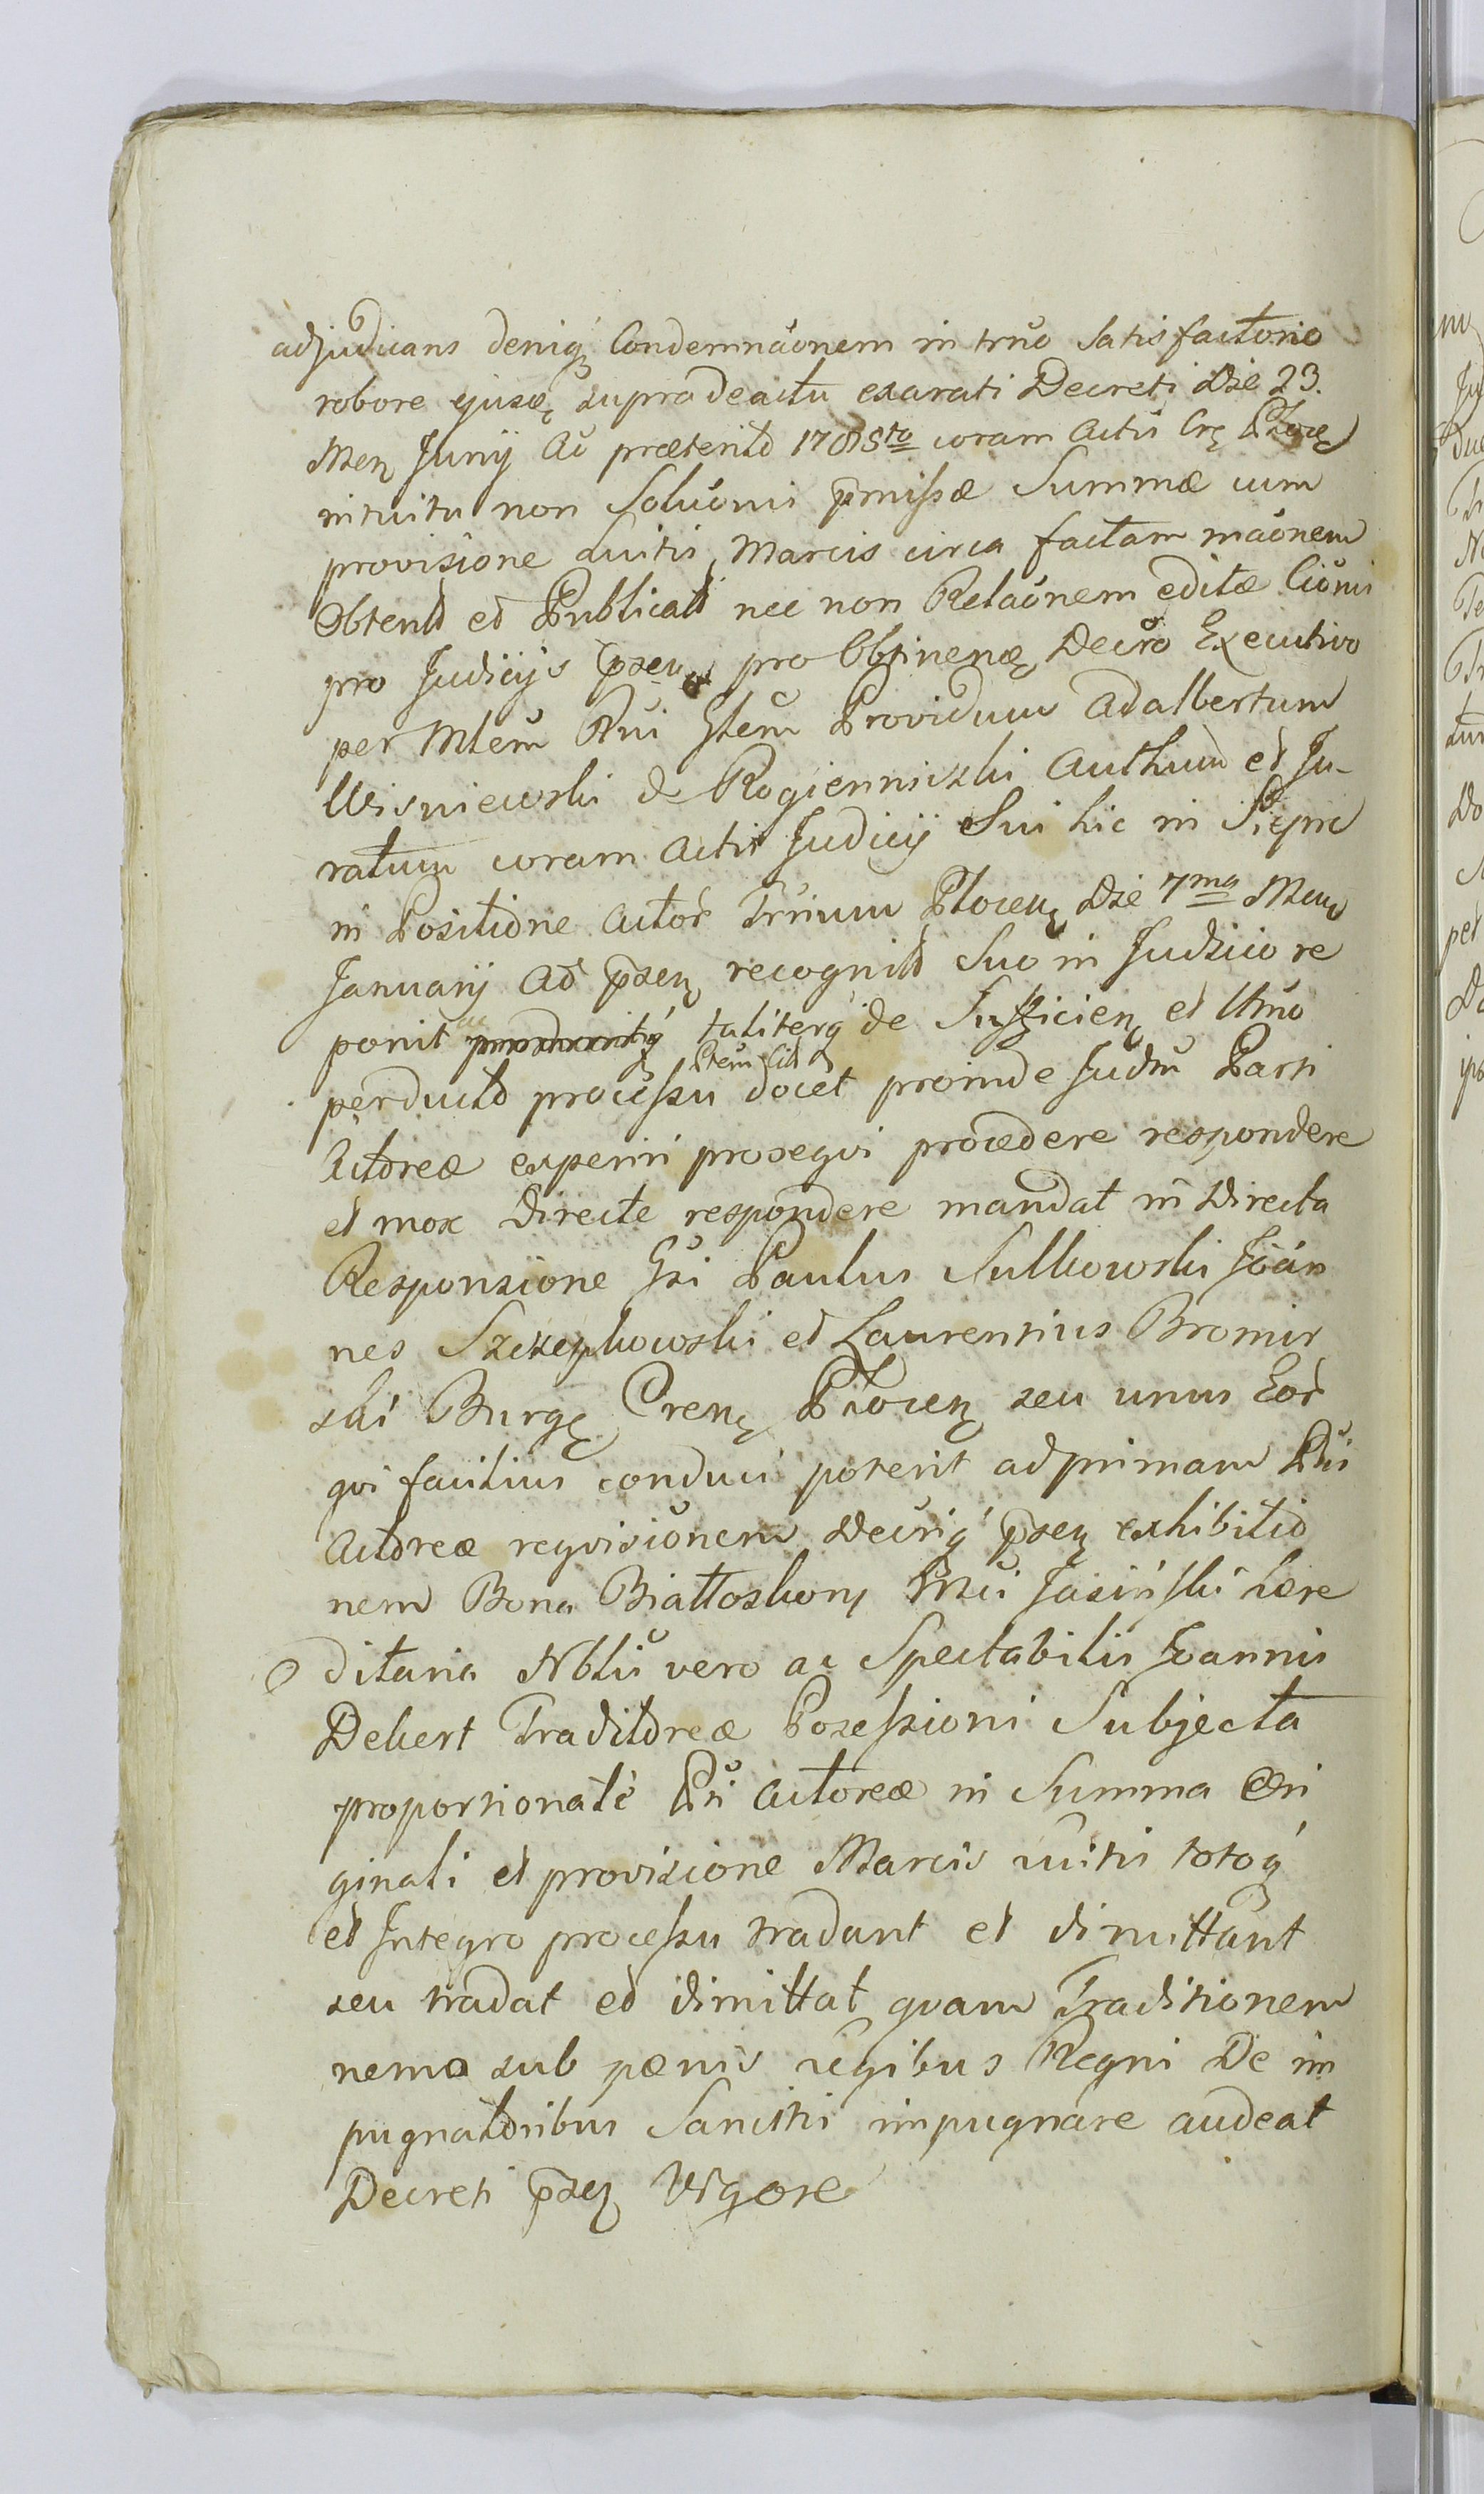 adjudicans deniq Condemnaōnem in trno Satisfactorio
robore ejusd supra de actu exarati Decreti Die 23.
Men Junij Ao præterito 178 sto coram Actis Cr Ploc
intuitu non Soluōnis pmissæ Summæ cum
provisione Luitis Marcis circa factam māonem
Obtento et Publicato nec non Relaōnem editæ Ciōnis
pro Judicijs psen pro Obtinend Decro Executivo
per Mlem Rni Gtem Providum Adalbertum
Wisniewski de Rogienniczki Authum et Ju-
ratum coram Actis Judicij Sui hic in Sieprc
in Positione Actor Trnium Plocen Die 7ma Men
Januarij Ao psen recognito Suo in Judicio re
ponit ac taliterq de Sufficien et Utmo
Ptem Cit
perducto processu docet proinde Judm Parti
Actoreæ experiri prosequi procedere respondere
et mox Directe respondere mandat in Directa
Responsione Gsi Paulus Sulkowski Joan
nes Szczepkowski et Laurentius Bromir
ski Burg Cren Plocen seu unus Eor
qui facilius conduci poterit ad primam Ptis
Actoreæ reqvisionem Decriq psen exhibitio
nem Bona Białłoskory Msci Jasiński hære
ditaria Nblis vero ac Spectabilis Joannis
Debert Traditoreæ Possessioni Subjecta
proportionate Pti Actoreæ in Summa Ori
ginali et provisione Marcis luitis totoq
et Integro processu tradant et dimittant
seu tradat et dimittat quam Traditionem
nemo sub pænis legibus Regni De im
pugnatoribus Sancitis impugnare audeat
Decreti psen Vigore